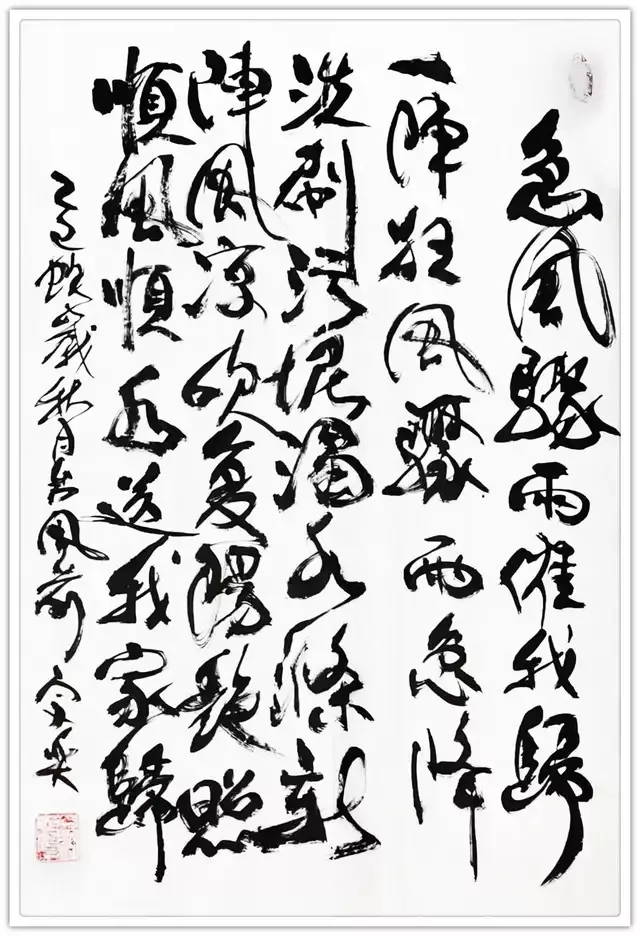 急風驟雨催我歸
一陣狂風驟雨急降
洗刷污泥濁水滌新
陣風凉吹夏陽艳照
順風順水送我家歸
乙巳蛇歲秋月